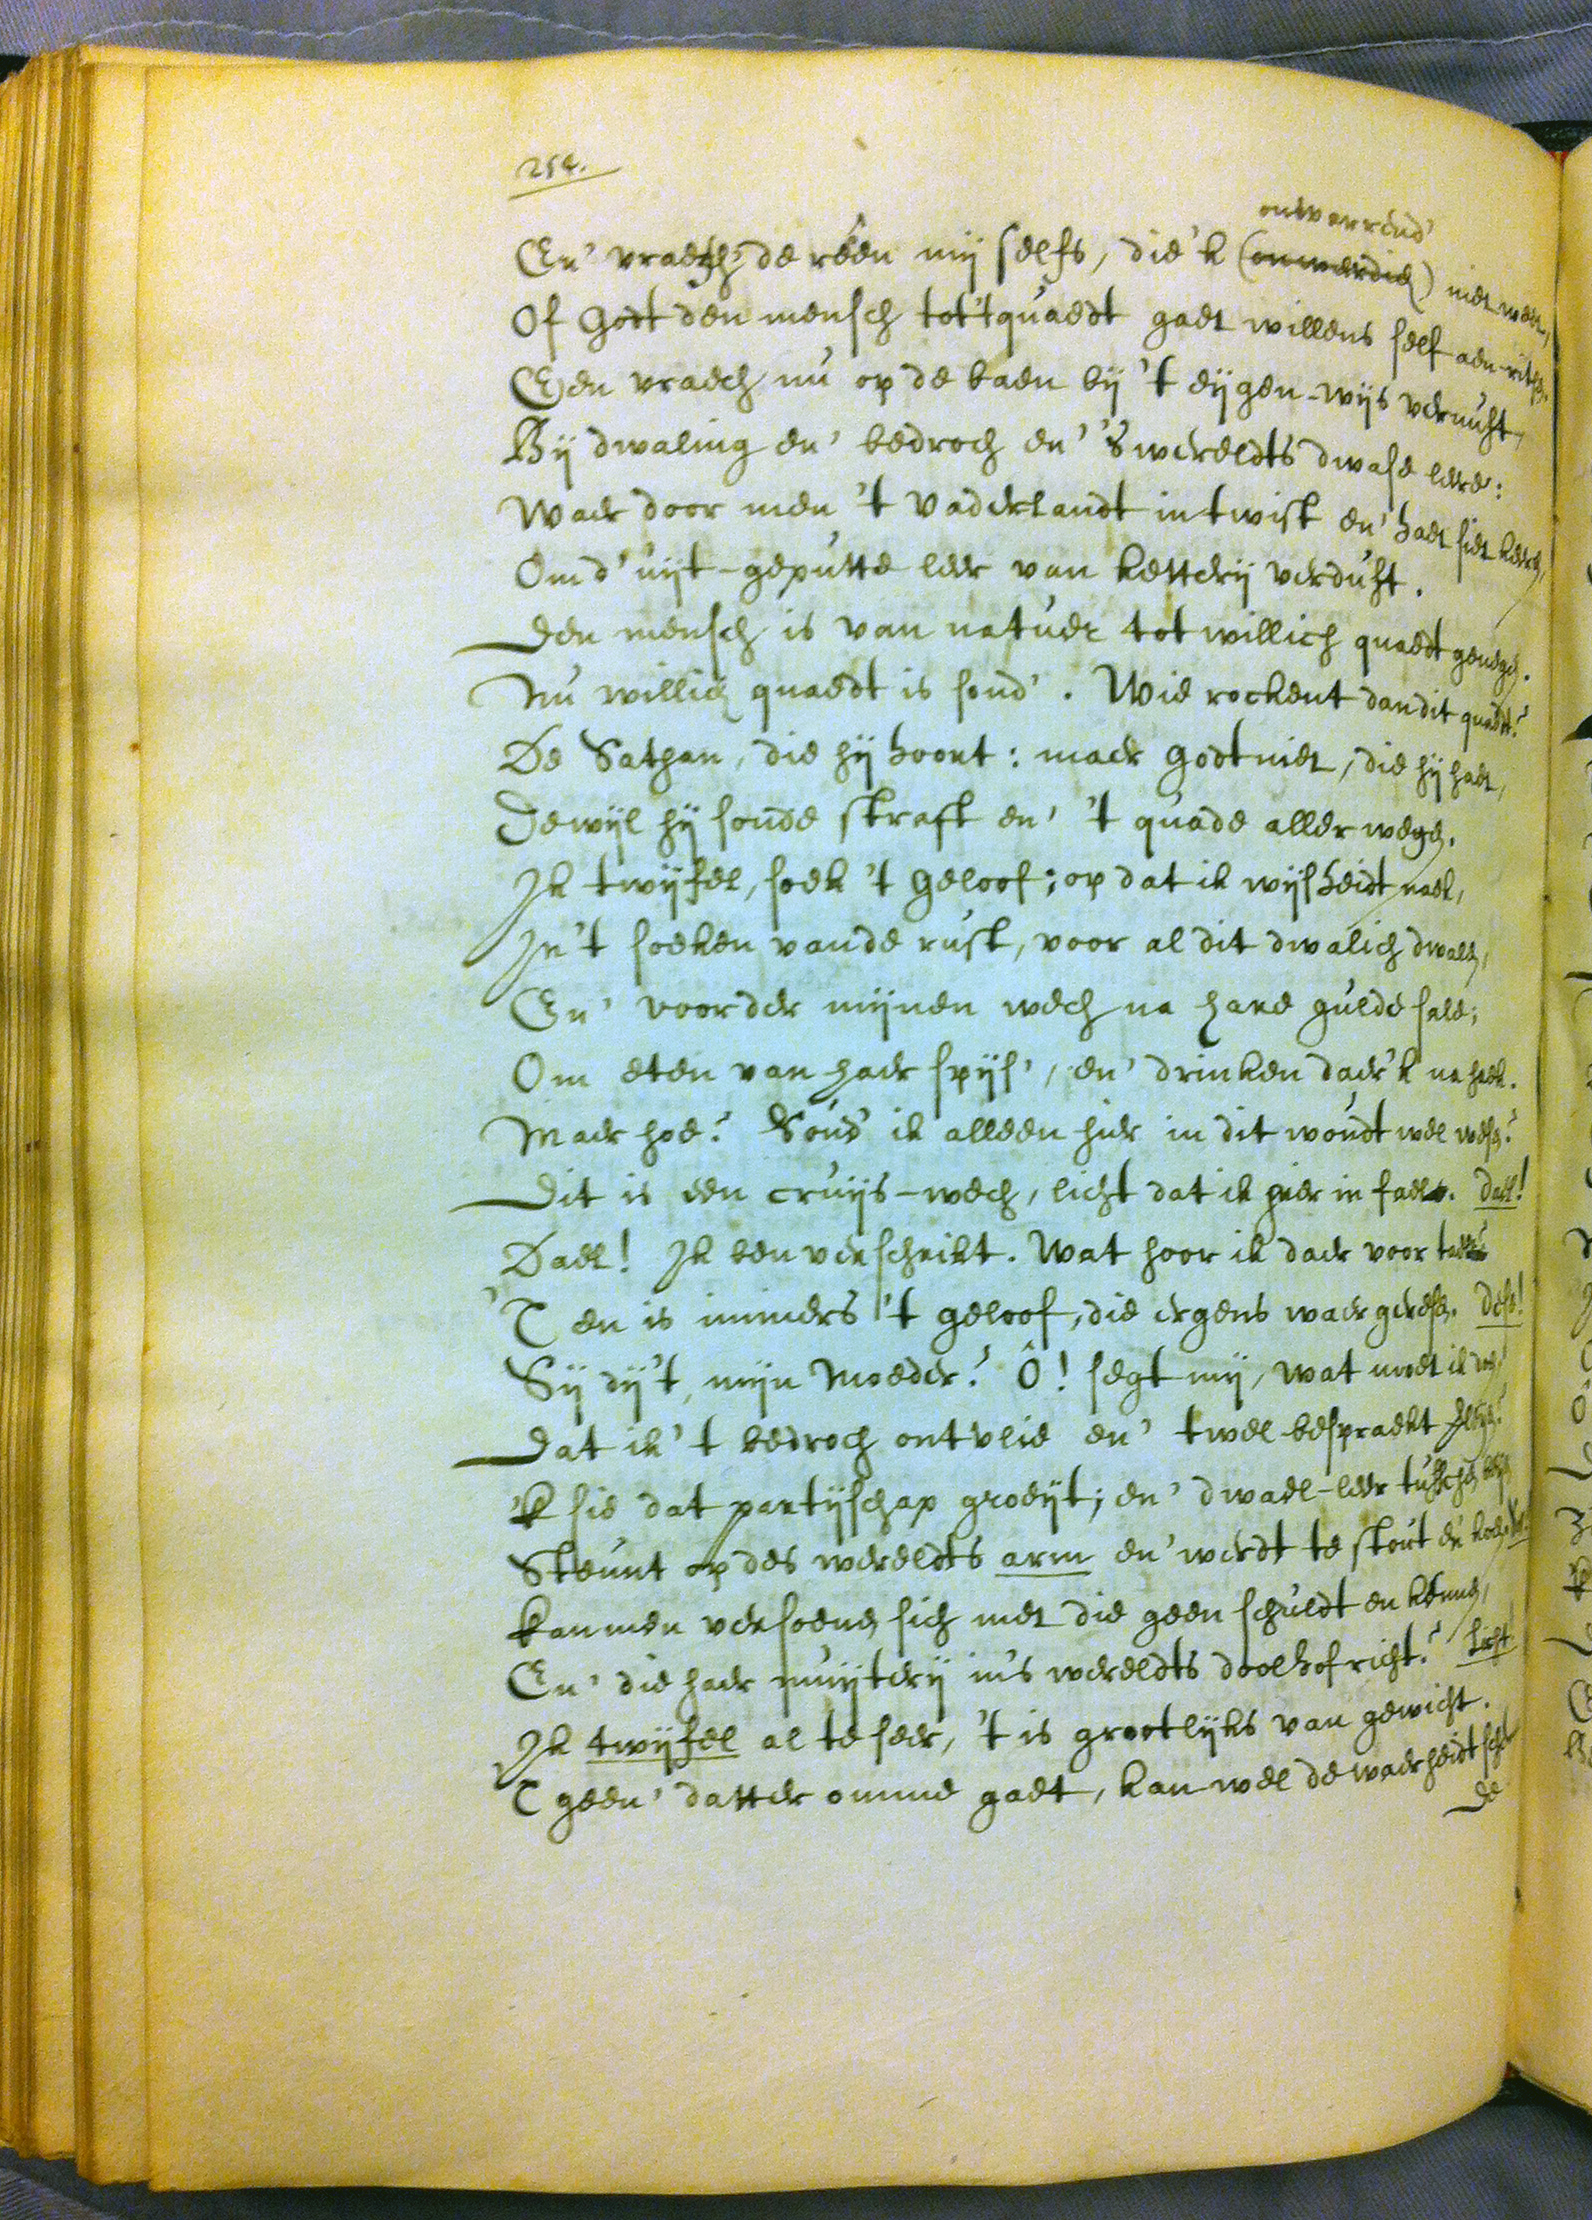 254.
ontwarrend'
En' vraech de rêen mij selfs, die'k (onwerdich) niet weet,
Of Godt den mensch tot 't quaedt gaet willens self aen-ritsen.
Een vraech nu op de baen bij 't eijgen-wijs vernuft,
Bij dwaling en' bedroch en' 's wereldts dwase leere:
Waer door men 't Vaderlandt in twist en' haet siet keeren,
Om d' uijt-geputte leer van ketterij verduft.
Den mensch is van natuer tot willich quaedt genegen.
Nu willich quaedt is sond'. Wie rockent dan dit quaedt?
De Sathan, die hij hoort: maer Godt niet, die hij haet,
Dewijl hij sonde straft en' 't quade aller wegen.
Ik twijfel, soek 't Geloof; op dat ik wijsheidt naek,
In 't soeken van de rust, voor al dit dwalich dwalen,
En' voorder mijnen wech na hare gulde sale;
Om eten van haer spijs', en' drinken daer'k na haek.
Maer hoe? Soud' ik alleen hier in dit woudt wel wesen?
Dit is een cruijs-wech, licht dat ik hier in fael. Dael!
Dael! Ik ben verschrikt. Wat hoor ik daer voor tael?
'T en is immers 't geloof, die ergens waer geresen. Dese!
Sij dij't, mijn Moeder? Ô! segt mij, wat moet ik doen,
Dat ik 't bedroch ontvlie en' twel bespraekt
'k sie dat partijschap groeijt; en' dwael-leer tusschen
Steunt op des wereldts arm en' werdt te stout en' koen.
Kan men versoenen sich met die geen schuldt en kennen,
En' die haer muijterij in's wereldts doolhof richt? Licht
Ik twijfel al te seer, 't is grootlijks van gewicht.
'T geen' datter omme gaet, kan wel de waerheidt
De